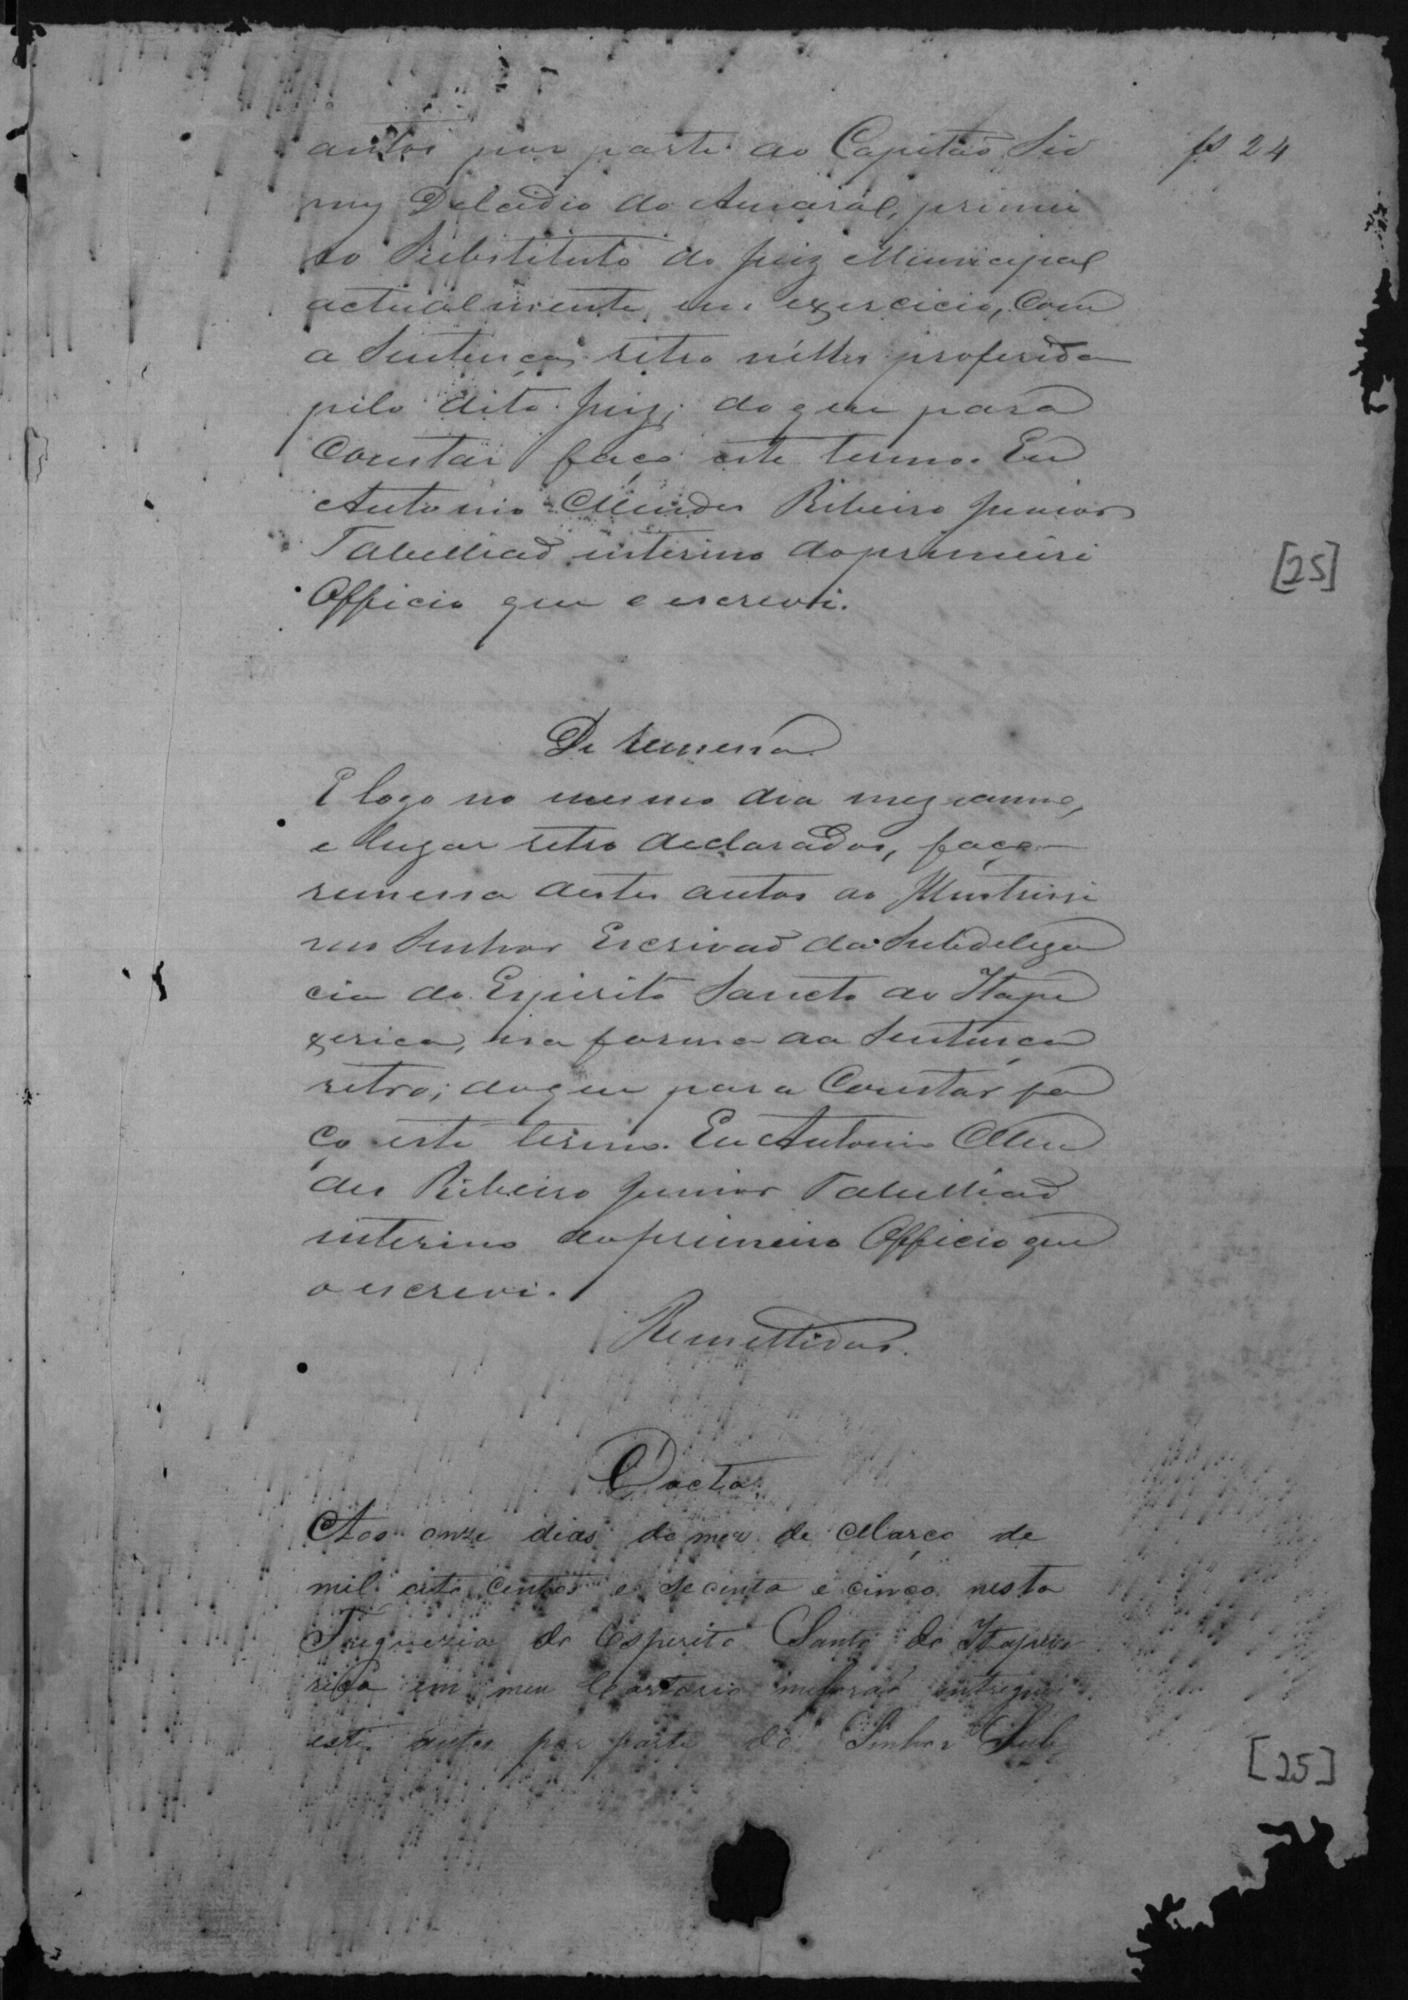 fs 24
autos por parte do Capitão
Delcidio do Amaral, primei
ro Substituto do Juiz Municipal
actualmente em exercicio, com
a Sentença retro nelles proferida
pelo dito Juiz; do que para
Constar faço este termo. Eu
Antonio Mendes Ribeiro Junior
Tabellião interino do primeiro
Officio que o escrevi.
[25]
De remessa
E logo no mesmo dia mez e anno,
e lugar retro declarados, faço
remessa destes autos ao Illustrissi
mo Senhor Escrivão da Subdelega
cia do Espirito Sancto do Itape
xerica, na forma da Sentença
retro; do que para Constar fa
ço este termo. Eu Antonio Men
des Ribeiro Junior Tabellião
interino do primeiro Officio que
o escrevi.
Remettidos.
Dacta
Aos onze dias do mez de Março de
mil oito centos e secenta e cinco nesta
Freguezia do Esperito Santo do Itapece
rica em meu Cartorio me forão entregues
estes autos por parte do Senhor Sub
[25]